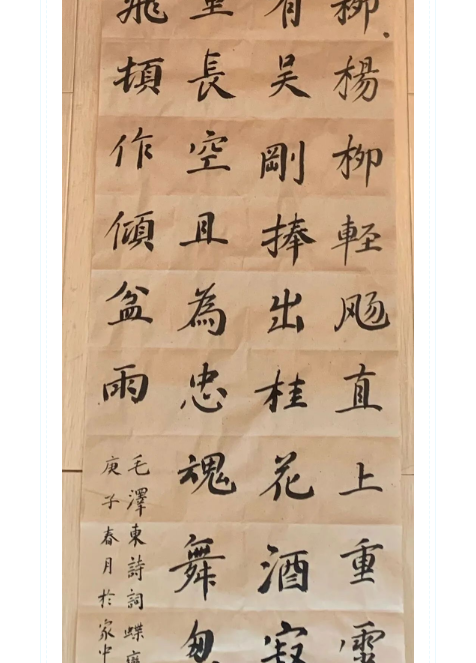 柳楊柳輕飏直上重霄
有吴剛捧出桂花酒寂
里長空且為忠魂舞忽
飛頓作傾盆雨
毛澤東詩詞蝶戀
庚子春月於家中